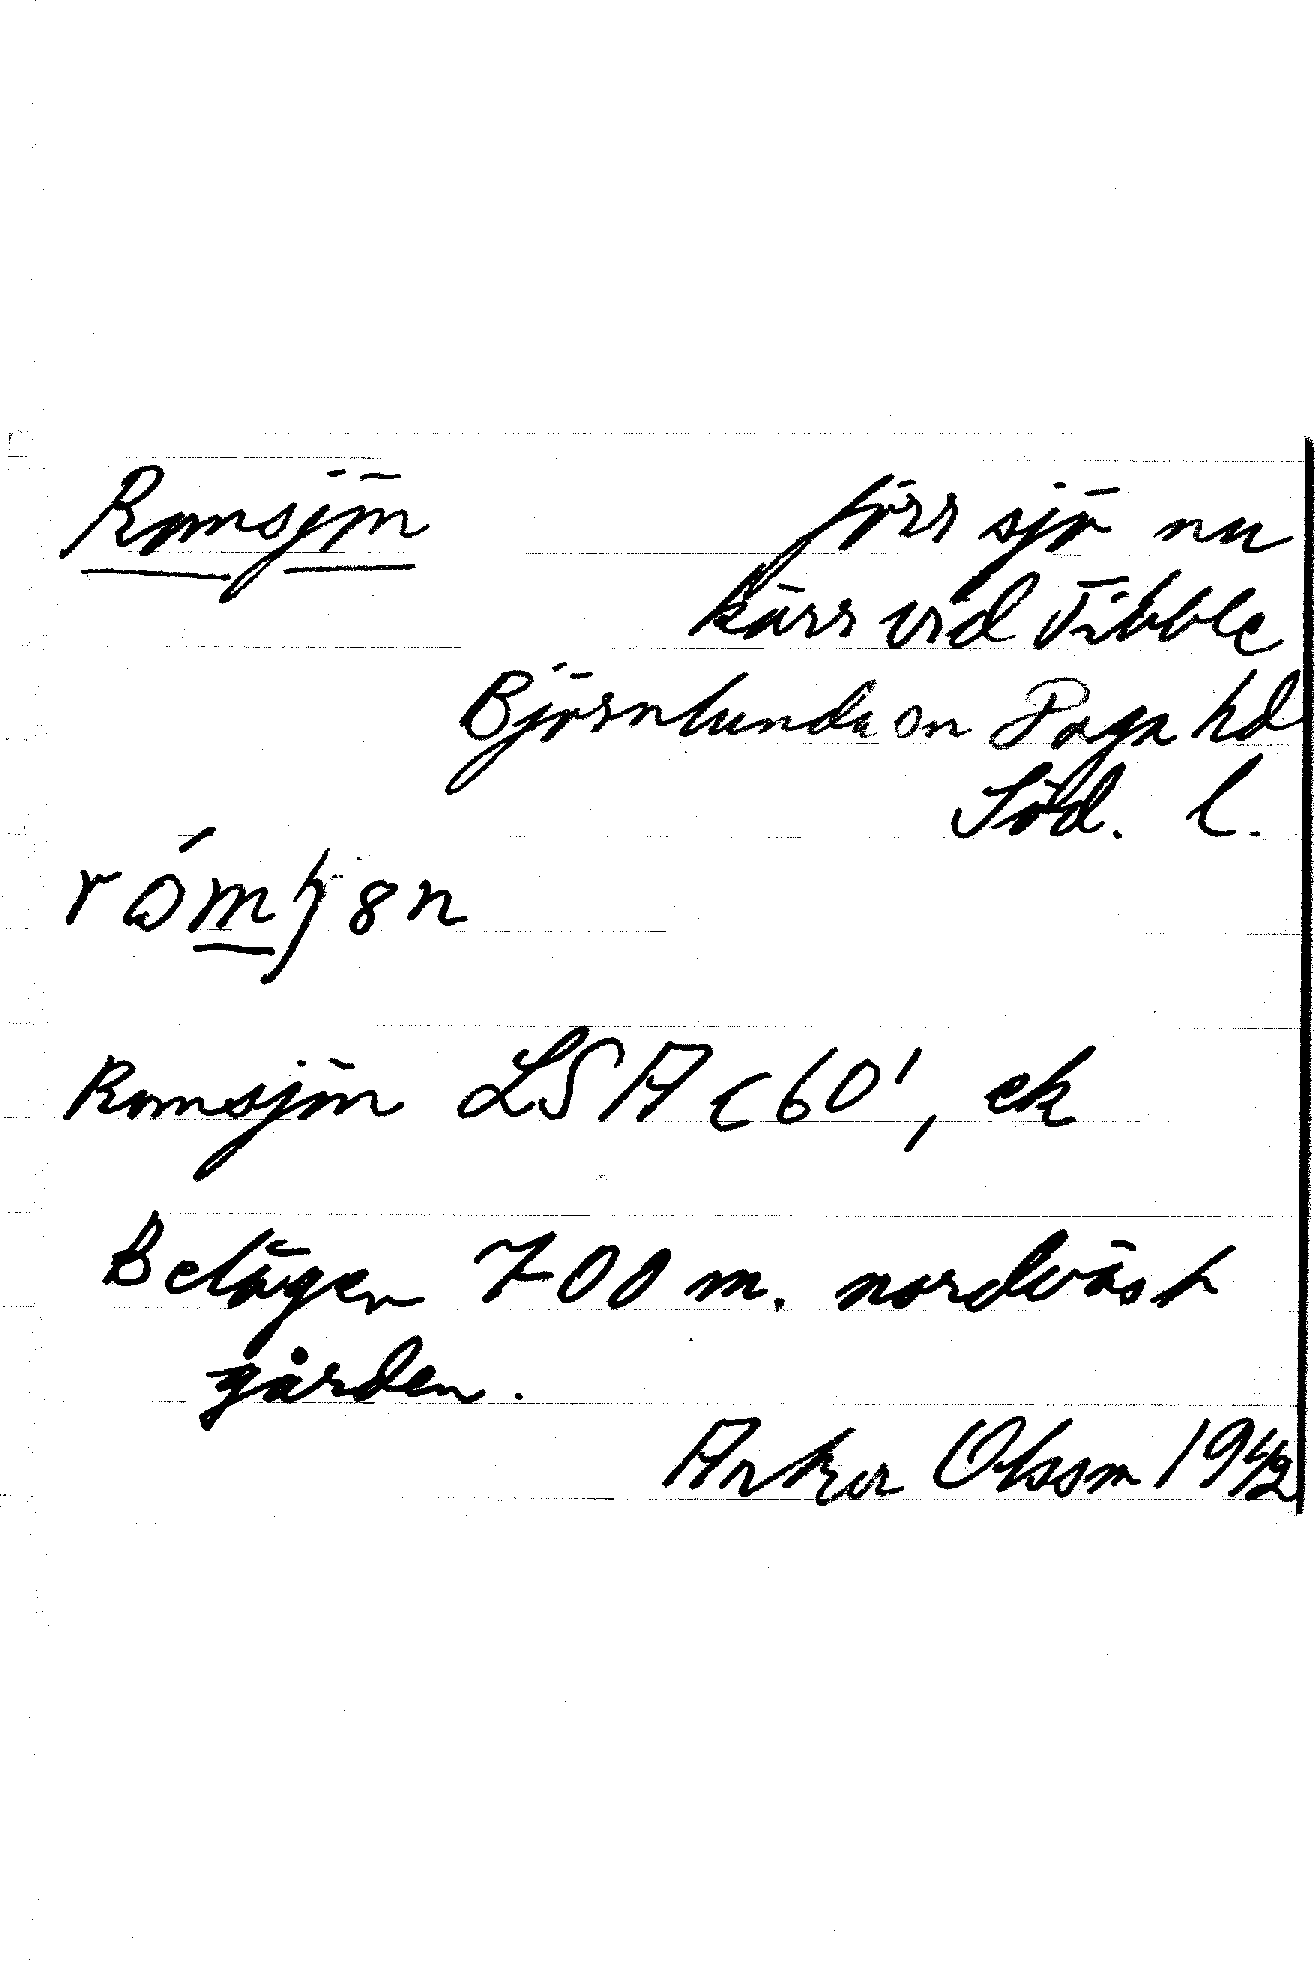 Romsjön
förr sjö nu
kärr vid Tibble
Björnlunda sn Daga hd
Söd. l.
Romsjön LSA C60', ek
Belägen 700 m. nordväst
gården.
Olsson 1942